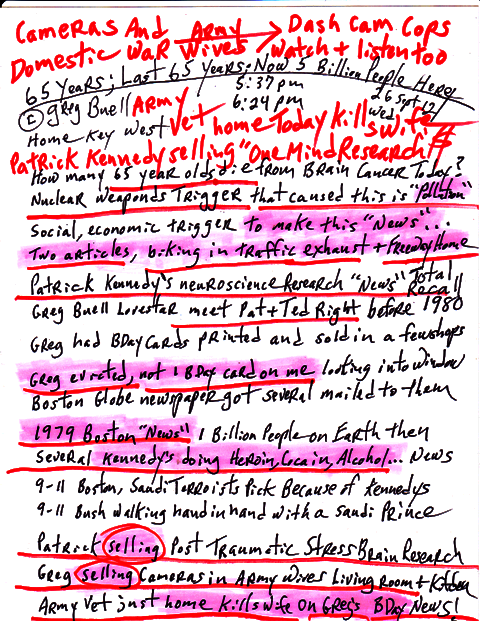 Cameras And Army → Dash Cam Cops
Domestic War Wives watch + listen too
65 Years; Last 65 Years. Now 5 Billion People Here
I Greg Buell Army 5:37 pm 26 Sept 12
Home Key West 6:24 pm Wed
Vet home Today Kills wife
Patrick Kennedy selling "One Mind Research"
How many 65 year olds die from Brain Cancer Today?
Nuclear Weaponds Trigger that caused this is "Pollution"
Social, economic trigger to make this "News"...
Two articles, biking in traffic exhaust + Freeway Home
Patrick Kennedy's neuroscience Research "News" Total Recall
Greg Buell Lovestar meet Pat + Ted Right before 1980
Greg had BDay Cards printed and sold in a few shops
Greg evicted, not 1 BDay card on me looking into window
Boston Globe newspaper got several mailed to them
1979 Boston "News" 1 Billion People on Earth then
Several Kennedy's doing Heroin, Cocain, Alcohol... News
9-11 Boston, Saudi Terroists Pick Because of Kennedys
9-11 Bush walking hand in hand with a Saudi Prince
Patrick selling Post Traumatic Stress Brain Research
Greg selling Cameras in Army Wives Living Room + Kitchen
Army Vet just home Kills wife on Greg's BDay News!